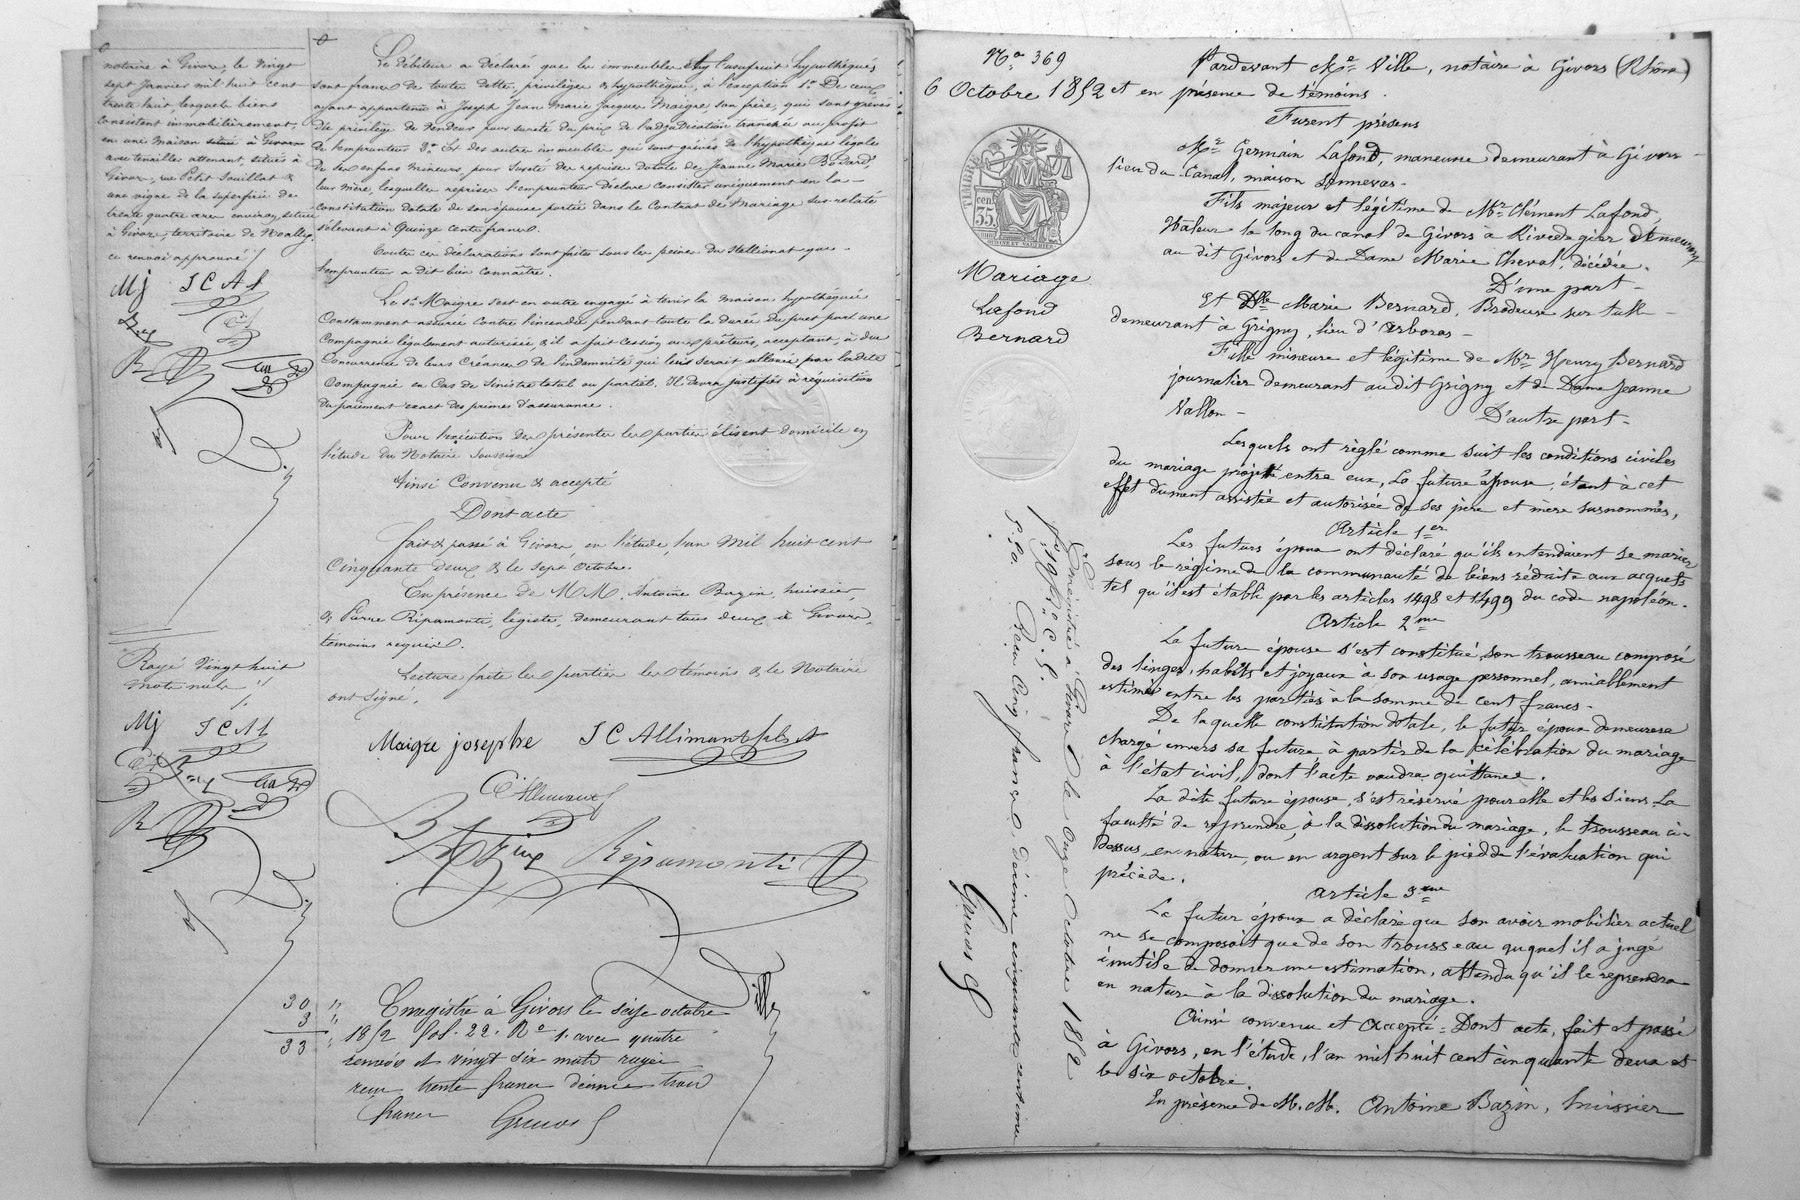 notaire à Givors le vingt
sept Janvier mil huit cent
trente huit lesquels biens
consistent immobilièrement,
en une maison située à Givors
avec tenailles attenant, situés à
Givors, rue Petit Souillat &
une vigne de la superficie de
trente quatre ares environ, située
à Givors, territoire de
ce renvoi approuvé
Mj J C A f
Rayé vingt huit
mots nuls
Mj J C A f
30 "
3 "
33 "
Le Débiteur a Déclaré que les immeubles et l'usufruit hypothéqués
sont francs de toutes dettes, privilèges & hypothèques, à l'exception 1o De ceux
ayant appartenu à Joseph Jean Marie Jacques Maigre son frère, qui sont grevés
du privilège de vendeur pour sureté du prix de l'adjudication tranchée au profit
de l'emprunteur 2o Et des autres immeubles qui sont grevés de l'hypothèque légale
de ses enfans mineurs, pour sureté des reprises dotales de Jeanne Marie
leur mère, lesquelles reprises l'emprunteur Déclare consister uniquement en la
constitution dotale de son épouse portée dans le Contrat de Mariage sus relaté
s'élevant à Quinze cents francs.
Toutes ces Déclarations sont faites sous les peines du Stellionat que
l'emprunteur a Dit bien connaitre.
Le sr. Maigre s'est en outre engagé à tenir la maison hypothéquée
Constamment assurée contre l'incendie pendant toute la durée du prêt par une
Compagnie légalement autorisée & il a fait cession aux prêteurs, acceptant, à due
Concurrence de leurs Créances de l'indemnité qui leur serait allouée par ladite
Compagnie en Cas de Sinistre total ou partiel. Il devra justifier à réquisition
du paiement exact des primes d'assurance.
Pour l'exécution des présentes les parties élisent domicile en
l'étude du Notaire soussigné
Ainsi Convenu & accepté
Dont acte
Fait & passé à Givors, en l'étude, l'an Mil huit cent
Cinquante deux & le sept octobre
En présence de M.M. Antoine Bazin, huissier
& Pierre Ripamonti, légiste, demeurant tous deux à Givors,
témoins requis.
Lecture faite les parties les témoins & le Notaire
ont signé.
Maigre josephe J C Allimant
Bazin Ripamonti
Ville
Enregistré à Givors le seize octobre
1852 fol. 22. Ro 1. avec quatre
renvois et vingt six mots rayés
reçu trente francs décime trois
francs
No 369
6 Octobre 1852
TIMBRE
35 cen.
Mariage
Lafond
Bernard
Enregistré à Givors le onze Octobre 1852
Reçu cinq francs décime cinquante centimes
Pardevant Me Ville, notaire à Givors (Rhône)
et en présence de témoins.
Furent présens
Mr Germain Lafond, maneuvre demeurant à Givors
lieu du Canal, maison Sennevas.
Fils majeur et légitime de Mr Clément Lafond,
Haleur le long du canal de Givors à Rivedegier demeurant
au dit Givors et de Dame Marie Cheval, décédée.
D'une part
Et Dlle Marie Bernard, Brodeuse sur tulle
demeurant à Grigny, lieu d'Arboras
Fille mineure et légitime de Mr Henry Bernard
journalier demeurant audit Grigny et de Dame Jeanne
Vallon
D'autre part
Lesquels ont règlé comme suit les conditions civiles
du mariage projeté entre eux, La future épouse, étant à cet
effet dument assistée et autorisée de ses père et mère susnommés,
Article 1er
Les futurs époux ont déclaré qu'ils entendaient se marier
sous le régime de la communauté de biens réduite aux acquets
tel qu'il est établi par les articles 1498 et 1499 du code napoléon.
Article 2me
La future épouse s'est constitué son trousseau composé
des linges, habits et joyaux à son usage personnel, amiablement
estimés entre les parties à la somme de cent francs.
De laquelle constitution dotale, le futur époux demeurera
chargé envers sa future à partir de la célébration du mariage
à l'état civil, dont l'acte vaudra quittance.
La dite future épouse, s'est réservé pour elle et les siens La
faculté de reprendre, à la dissolution du mariage, le trousseau ci-
dessus, en nature, ou en argent sur le pied de l'évaluation qui
précède.
article 3me
Le futur époux a déclaré que son avoir mobilier actuel
ne se composait que de son trousseau auquel il a jugé
inutile de donner une estimation, attendu qu'il le reprendra
en nature à la dissolution du mariage.
Ainsi convenu et accepté = Dont acte, fait et passé
à Givors, en l'étude, l'an mil huit cent cinquante deux et
le six octobre.
En présence de M.M. Antoine Bazin, huissier